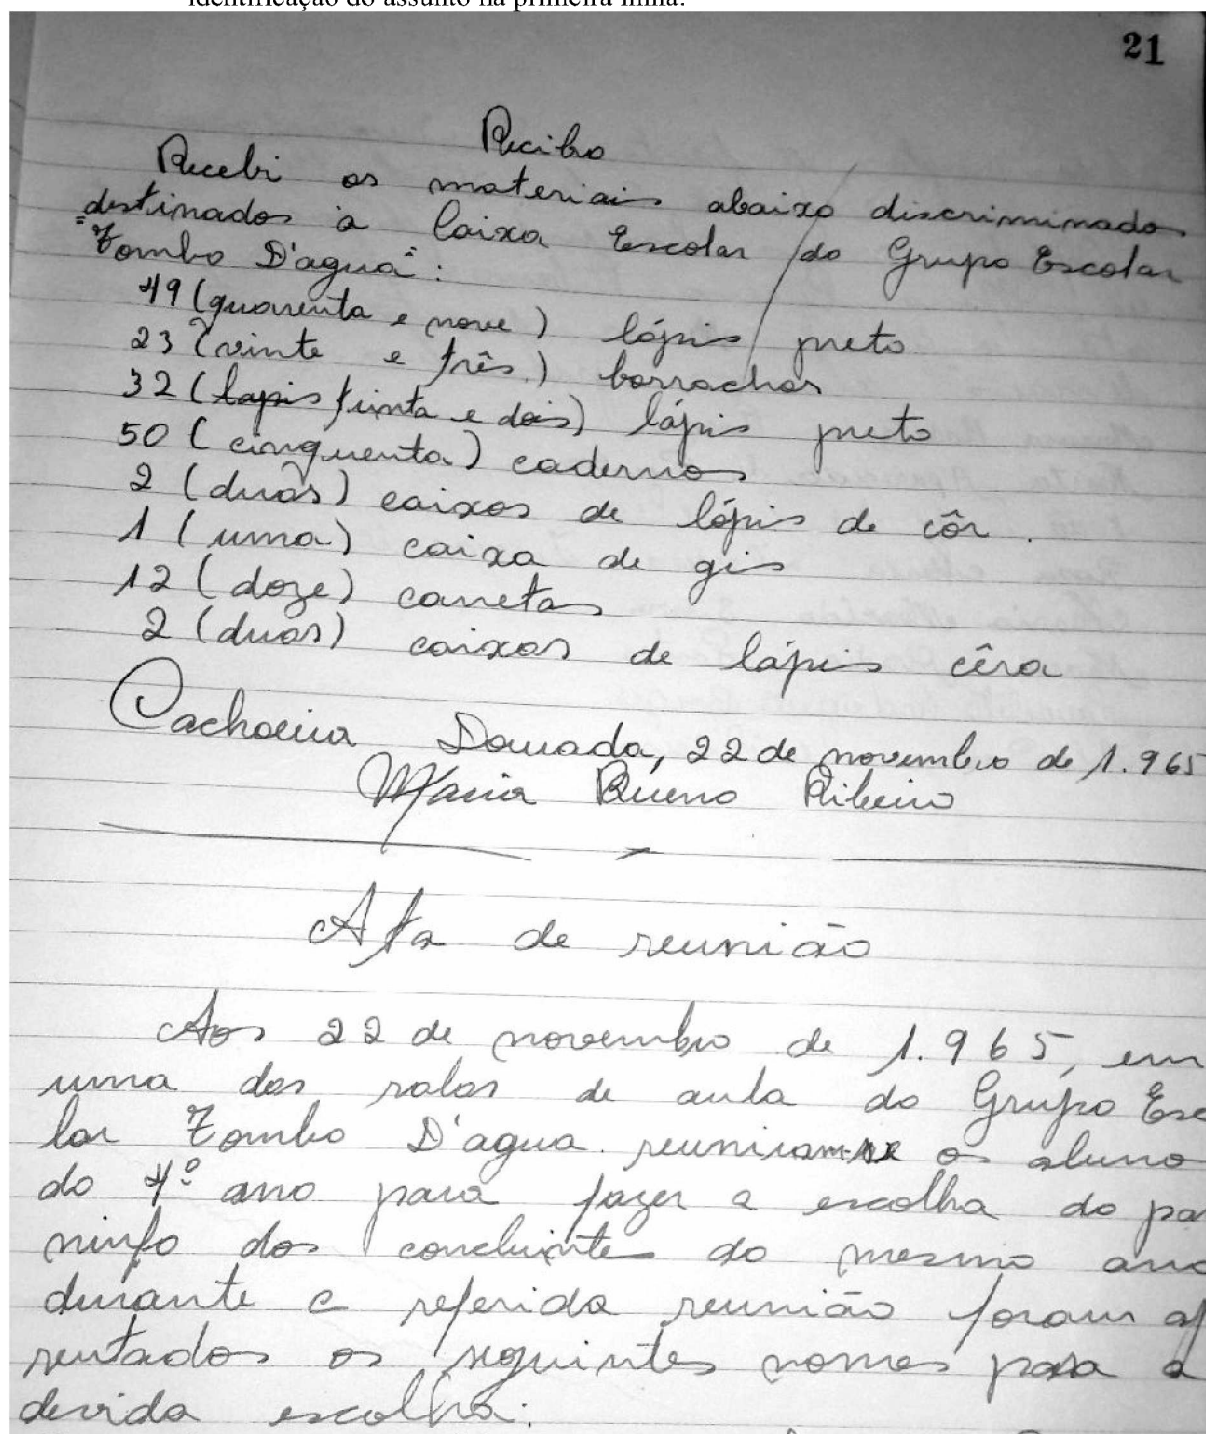 identificação do assunto na primeira linha.
21
Recibo
Recebi os materiais abaixo discriminados
destinados a Caixa Escolar do Grupo Escolar
"Tombo D'agua":
49 (quarenta e nove) lápis preto
23 (vinte e três) borrachas
32 (lapis trinta e dois) lápis preto
50 (cinquenta) cadernos
2 (duas) caixas de lápis de côr.
1 (uma) caixa de gis
12 (doze) canetas
2 (duas) caixas de lápis cêra
Cachoeira Dourada, 22 de novembro de 1.965
Maria Bueno Ribeiro
Ata de reunião
Aos 22 de novembro de 1.965, em
uma das salas de aula do Grupo Esc
lar Tombo D'agua reuniram-se os aluno
do 4º ano para fazer a escolha do pa
ninfo dos concluintes do mesmo ano
durante a referida reunião foram ap
sentados os seguintes nomes para a
devida escolha: